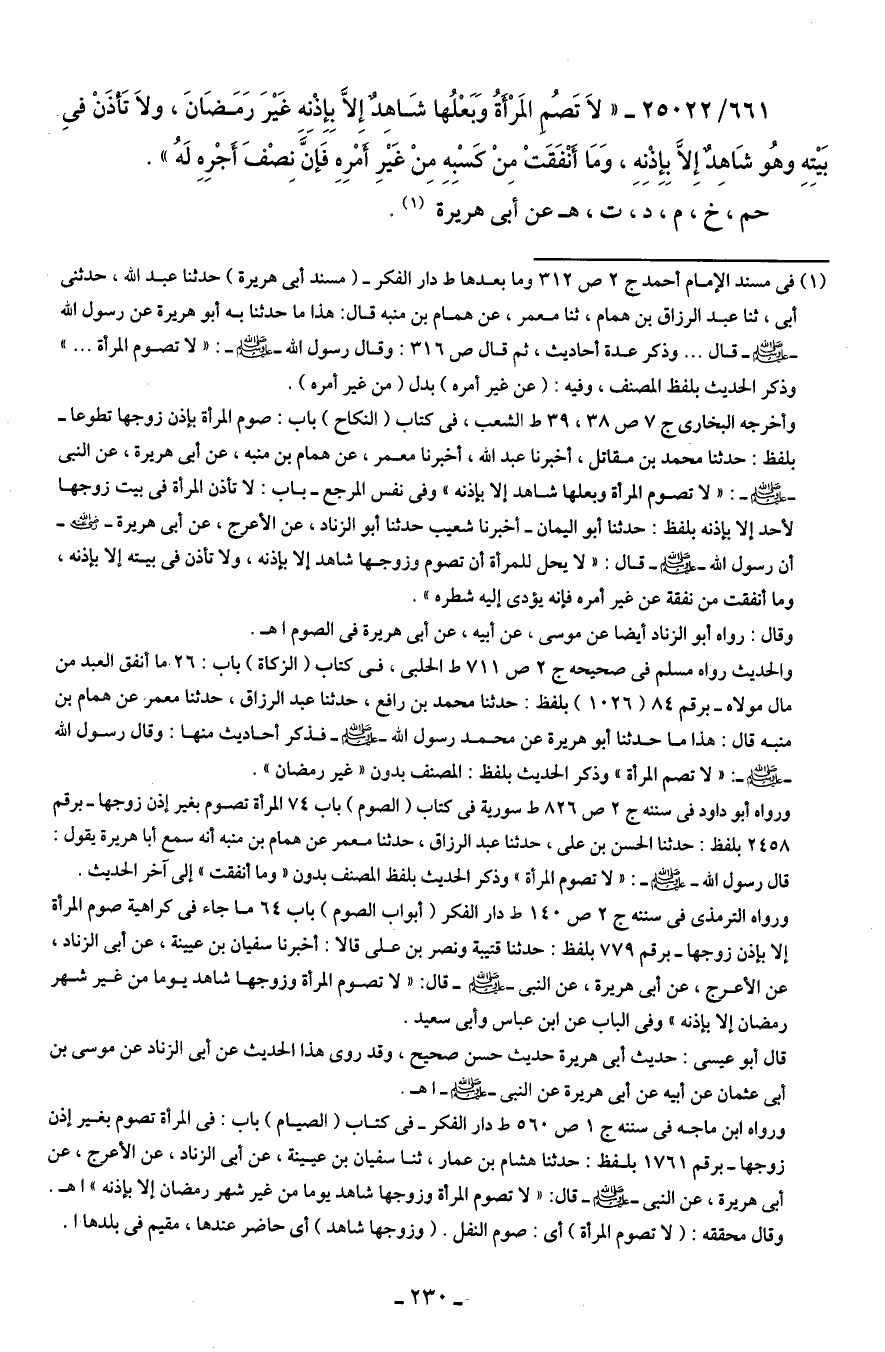 ٦٦١/ ٢٥٠٢٢ ـ « لاَ تَصُمِ المَرْأَةُ وَبَعْلُها شَـاهِدٌ إِلاَّ بِإِذْنِهِ غَيْرَ رَمَـضَانَ ، ولاَ تَأذَنْ فِى
بَيْتِهِ وهُو شَاهِدٌ إِلاَّ بِإِذْنِهِ ، وَمَا أَنْفَقَتْ مِنْ كَسْبِهِ مِنْ غَيْرِ أَمْرِهِ فَإِنَّ نِصْفَ أَجْرِهِ لَهُ » .
حم ، خ ، م ، د ، ت ، هـ عن أبى هريرة (١) .
(١) فى مسند الإمـام أحمد ج ٢ ص ٣١٢ وما بعدها ط دار الفكر ـ ( مسند أبى هريرة ) حدثنا عبـد الله ، حدثنى
أبى ، ثنا عبـد الرزاق بن همام ، ثنا مـعمر ، عن همـام بن منبه قـال: هذا ما حدثنا بـه أبو هريرة عن رسول الله
ـ ﷺ ـ قـال ... وذكر عدة أحاديث ، ثم قـال ص ٣١٦ : وقـال رسول الله ـ ﷺ ـ : « لا تصـوم المرأة ... »
وذكر الحديث بلفظ المصنف ، وفيه : ( عن غير أمره ) بدل ( من غير أمره ) .
وأخرجه البخارى ج ٧ ص ٣٨ ، ٣٩ ط الشعب ، فى كتاب ( النكاح ) باب : صوم المرأة بإذن زوجها تطوعا ـ
بلفظ : حدثنا محمد بن مـقاتل ، أخبرنا عبد الله ، أخبرنا معـمر ، عن همام بن منبه ، عن أبى هريرة ، عن النبى
ـ ﷺ ـ : « لا تصـوم المرأة وبعلها شـاهد إلا بإذنه » وفى نفس المرجع ـ بـاب : لا تأذن المرأة فى بيت زوجهـا
لأحد إلا بإذنه بلفظ : حدثنا أبو اليمان ـ أخبرنا شعيب حدثنا أبو الزناد ، عن الأعرج ، عن أبى هريرة ـ رضي الله عنه ـ
أن رسول الله ـ ﷺ ـ قـال : « لا يحل للمرأة أن تصوم وزوجـها شاهد إلا بإذنه ، ولا تأذن فى بيـته إلا بإذنه ،
وما أنفقت من نفقة عن غير أمره فإنه يؤدى إليه شطره » .
وقال : رواه أبو الزناد أيضا عن موسى ، عن أبيه ، عن أبى هريرة فى الصوم ا هـ .
والحديث رواه مسلم فى صحيحه ج ٢ ص ٧١١ ط الحلبى ، فـى كتاب ( الزكاة ) باب : ٢٦ ما أنفق العبد من
مال مولاه ـ برقم ٨٤ ( ١٠٢٦ ) بلفظ : حدثنا محمد بن رافع ، حدثنا عبد الرزاق ، حدثنا معمر عن همام بن
منبـه قال : هذا مـا حـدثنا أبو هريرة عن محـمـد رسول الله ـ ﷺ ـ فـذكر أحـاديث منهـا : وقال رسول الله
ـ ﷺ ـ: « لا تصم المرأة » وذكر الحديث بلفظ : المصنف بدون « غير رمضان » .
ورواه أبو داود فى سننه ج ٢ ص ٨٢٦ ط سورية فى كتاب ( الصوم ) باب ٧٤ المرأة تصـوم بغير إذن زوجها ـ برقم
٢٤٥٨ بلفظ : حدثنا الحسن بن على ، حدثنا عبد الرزاق ، حدثنا مـعمر عن همام بن منبه أنه سمع أبا هريرة يقول :
قال رسول الله ـ ﷺ ـ : « لا تصوم المرأة » وذكر الحديث بلفظ المصنف بدون « وما أنفقت » إلى آخر الحديث .
ورواه الترمذى فى سننه ج ٢ ص ١٤٠ ط دار الفكر ( أبواب الصوم ) باب ٦٤ مـا جاء فى كراهية صوم المرأة
إلا بإذن زوجها ـ برقم ٧٧٩ بلفظ : حدثنا قتيبة ونصر بن عـلى قالا : أخبرنا سفيان بن عيينة ، عن أبى الزناد ،
عن الأعـرج ، عن أبى هريرة ، عن النبى ـ ﷺ ـ قال: « لا تصـوم المرأة وزوجهـا شاهد يـوما من غـير شـهر
رمضان إلا بإذنه » وفى الباب عن ابن عباس وأبى سعيد .
قال أبو عيسى : حديث أبى هريرة حديث حسن صحيح ، وقد روى هذا الحديث عن أبى الزناد عن موسى بن
أبى عثمان عن أبيه عن أبى هريرة عن النبى ـ ﷺ ـ ا هـ .
ورواه ابن ماجـه فى سننه ج ١ ص ٥٦٠ ط دار الفكر ـ فى كتـاب ( الصيـام ) باب : فى المرأة تصوم بغـير إذن
زوجها ـ برقم ١٧٦١ بلـفظ : حدثنا هشام بن عمار ، ثنـا سفيان بن عيـينة ، عن أبى الزناد ، عن الأعرج ، عن
أبى هريرة ، عن النبى ـ ﷺ ـ قال: « لا تصوم المرأة وزوجها شاهد يوما من غير شهر رمضان إلا بإذنه » ا هـ .
وقال محققه : ( لا تصوم المرأة ) أى : صوم النفل . ( وزوجها شاهد ) أى حاضر عندها ، مقيم فى بلدها ا .
ـ ٢٣٠ ـ